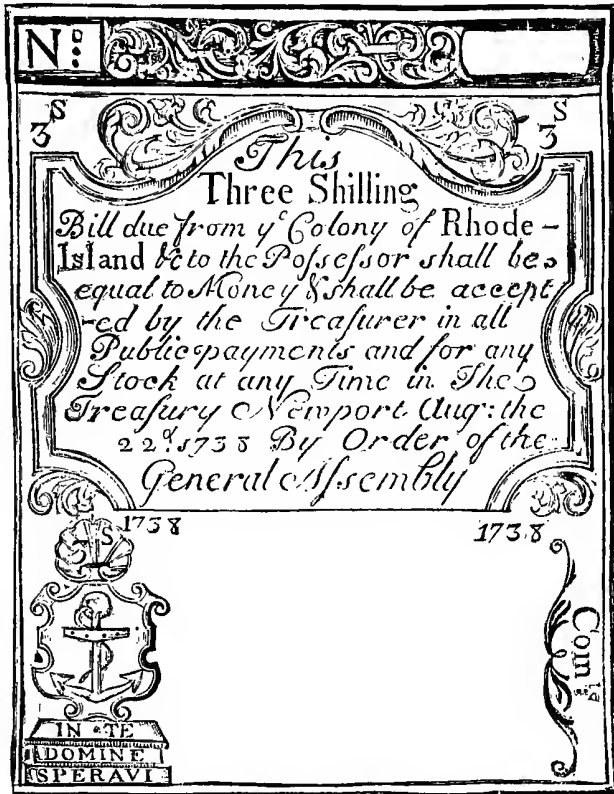 Nº:
3S 3S
This
Three Shilling
Bill due from yᵉ Colony of Rhode-
Island &c to the Poſseſsor shall be
equal to Money & shall be accept
-ed by the Treaſurer in all
Public payments and for any
Stock at any Time in The
Treaſury Newport Aug: the
22ᵈ. 1738 By Order of the
General Aſsembly
1738 1738
S
Comᵗᵗ
IN TE
DOMINE
SPERAVI